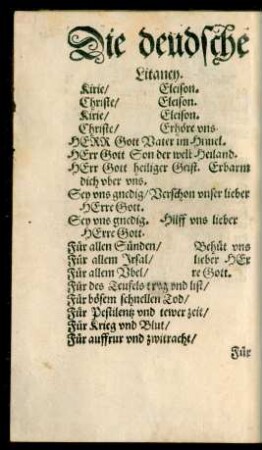 Die deudsche
Litaney.
Kirie/ Eleison.
Christe/ Eleison.
Kirie/ Eleison.
Christe/ Erhöre vns
HERR Gott Vater im Himel.
HErr Gott Son der welt Heiland.
HErr Gott heiliger Geist. Erbarm
dich vber vns.
Sey vns gnedig/ Verschon vnser lieber
HErre Gott.
Sey vns gnedig. Hilff vns lieber
HErre Gott.
Für allen Sünden/ Behüt vns
Für allem Irsal/ lieber HEr
Für allem Vbel/ re Gott.
Für des Teufels trug vnd list/
Für bösem schnellen Tod/
Für Pestilentz vnd tewer zeit/
Für Krieg vnd Blut/
Für auffrur vnd zwitracht/
Für